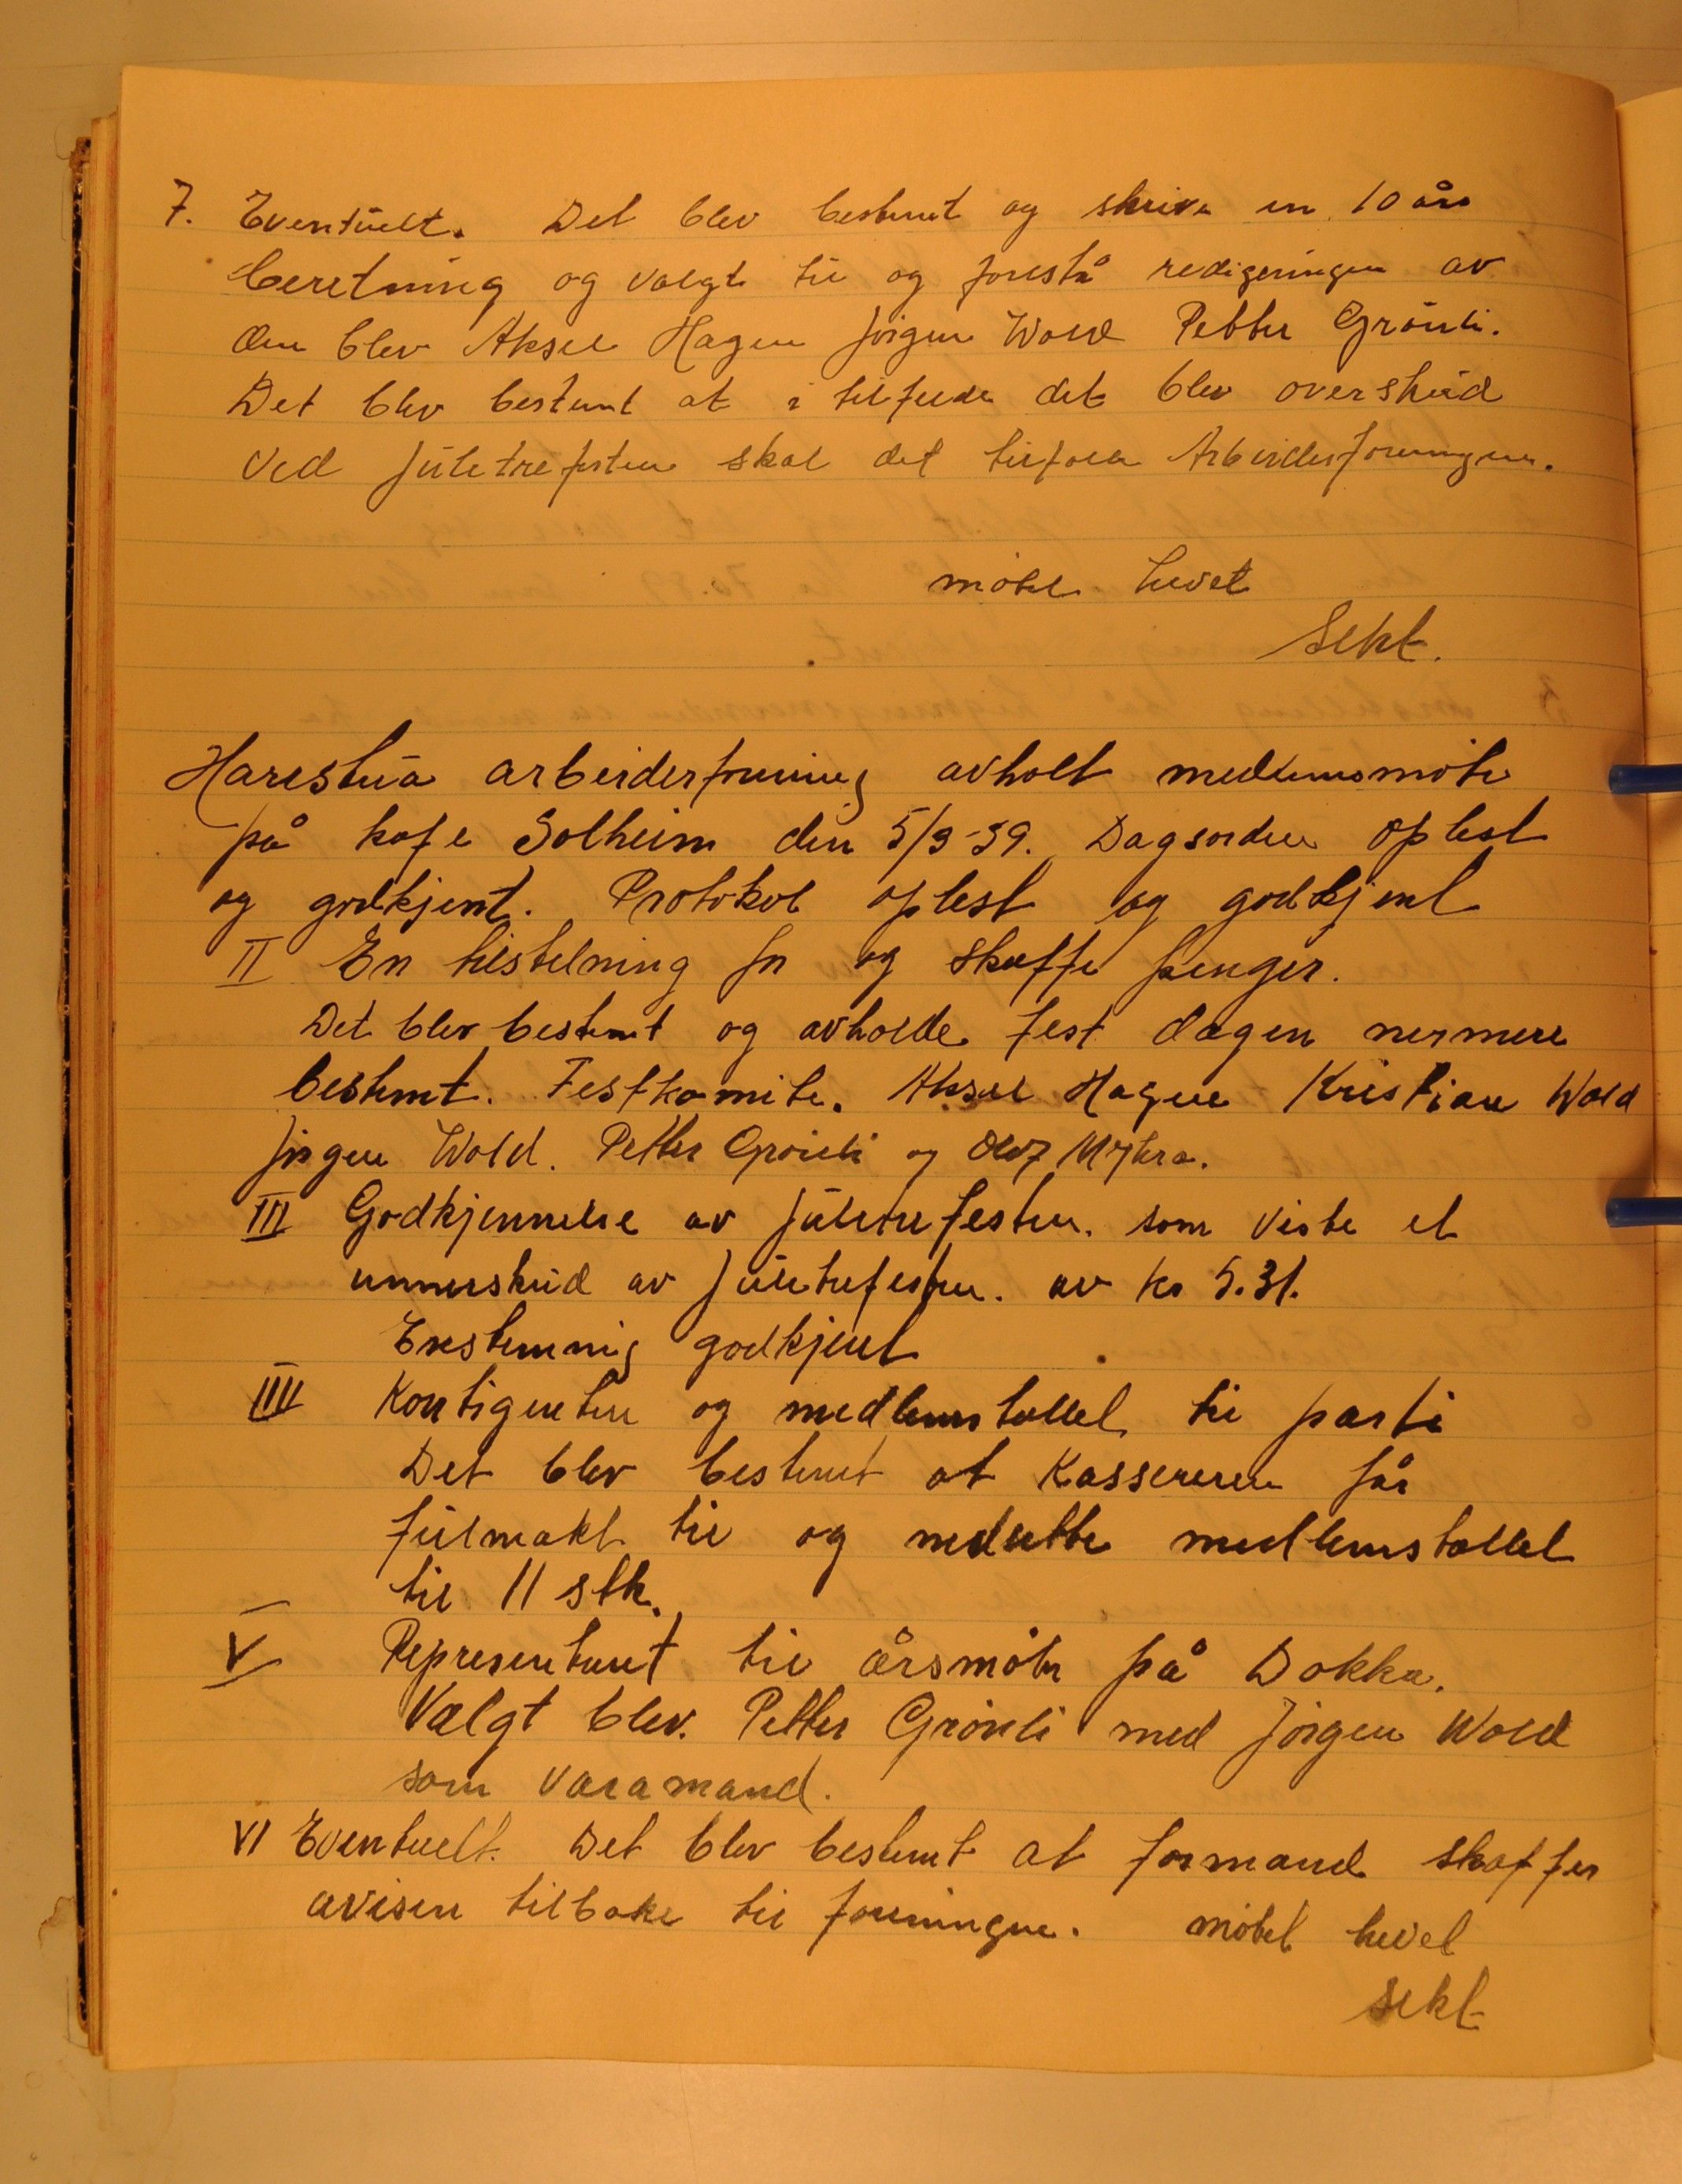 7. Eventuelt. Det blev bestemt og skrive en 10 års
beretning og valgt til og forestå redigeringen av
den blev Aksel Hagen Jørgen Wold Petter Grønli.
Det blev bestemt at i tilfelde det blev overskud
ved juletrefesten skal det tilfalle Arbeiderforeningen.
møtet hevet
Sekt.
Harestua arbeiderforening avholt medlemsmøte
på kafe Solheim den 5/3-39. Dagsorden oplest
og godkjent. Protokol oplest og godkjent
II En tilstelning for og skaffe penger.
Det blev bestemt og avholde fest dagen nermere
bestemt. Festkomite. Aksel Hagen Kristian Wold
Jørgen Wold. Petter Grønli og Olof Myhra.
III Godkjennelse av juletrefesten. som viste et
unnerskud av juletrefesten. av kr 5.31.
Enstemmig godkjent
IIII Kontigenten og medlemstallet til parti
Det blev bestemt at Kassereren får
fulmakt til og nedsette medlemstallet
til 11 stk.
V Representant til årsmøte på Dokka.
Valgt blev. Petter Grønli med Jørgen Wold
som varamand.
VI Eventuelt. Det blev bestemt at formand skaffer
avisen tilbake til foreningen. møtet hevet
sekt